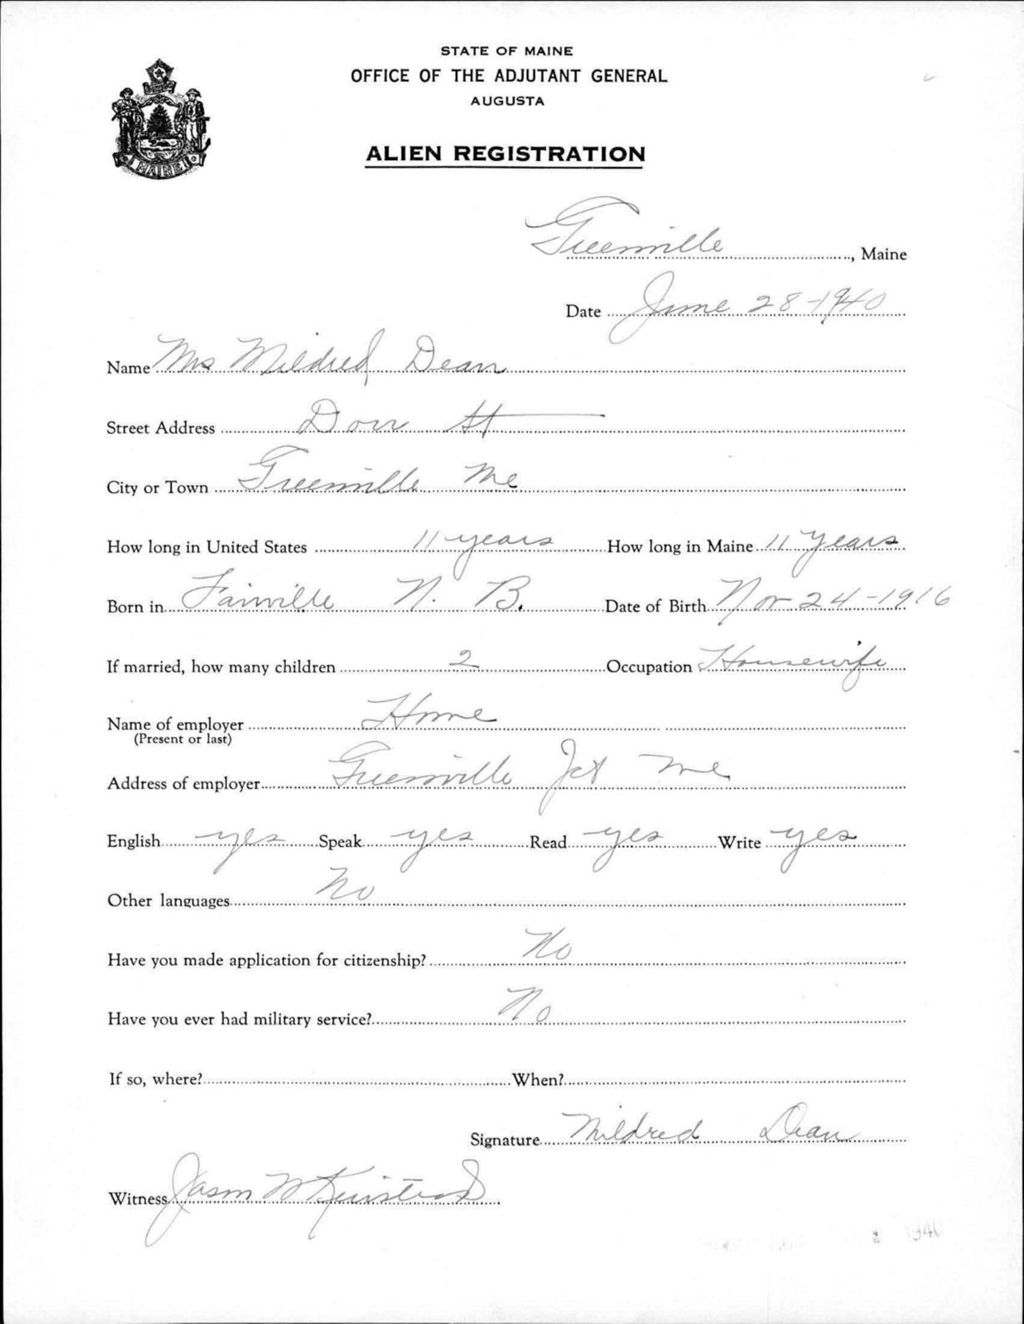 STATE OF MAINE
OFFICE OF THE ADJUTANT GENERAL
AUGUSTA
ALIEN REGISTRATION
Greenville, Maine
Date June 28-1940
Name Mrs Mildred Dean
Street Address Dow St
City or Town Greenville Me
How long in United States 11 years How long in Maine 11 years
Born in Fairville N. B. Date of Birth Nov 24-1916
If married, how many children 2 Occupation Housewife
Name of employer Home
(Present or last)
Address of employer Greenville Jct Me
English yes Speak yes Read yes Write yes
Other languages No
Have you made application for citizenship? No
Have you ever had military service? No
If so, where? When?
Signature Mildred Dean
Witness Jason W